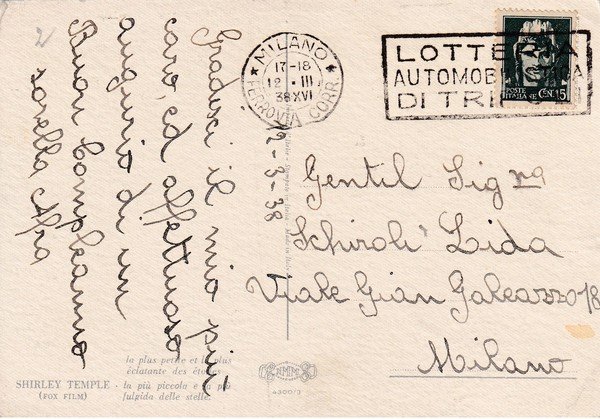 2
Gradisci il mio più
caro, ed affettuoso
augurio di un
Buon Compleanno
sorella Afra
12-3-38
MILANO
17-18
12 · III
38 XVI
FERROVIA CORR.
LOTTERIA
AUTOMOBILISTICA
DI TRIPOLI
POSTE
ITALIANE
CENT. 15
Gentil Sig na
Schiroli Lida
Viale Gian Galeazzo 18
Milano
la plus petite et la plus
éclatante des étoiles
SHIRLEY TEMPLE - la più piccola e la più
(FOX FILM) fulgida delle stelle
4300/3